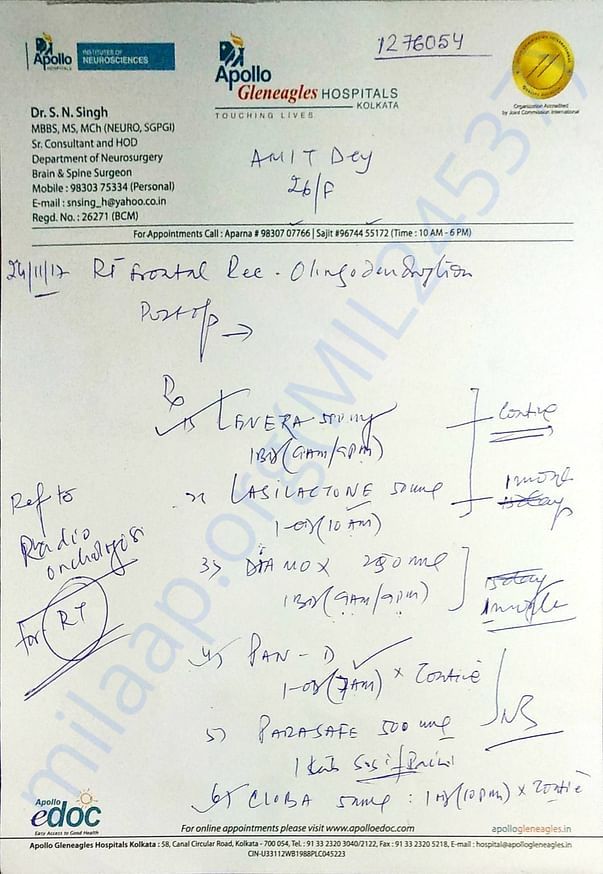 Apollo
HOSPITALS
INSTITUTES OF
NEUROSCIENCES
Apollo
Gleneagles HOSPITALS
KOLKATA
TOUCHING LIVES
1276054
Organization Accredited
by Joint Commission International
Dr. S. N. Singh
MBBS, MS, MCh (NEURO, SGPGI)
Sr. Consultant and HOD
Department of Neurosurgery
Brain & Spine Surgeon
Mobile : 98303 75334 (Personal)
E-mail : snsing_h@yahoo.co.in
Regd. No. : 26271 (BCM)
AMIT Dey
26/F
For Appointments Call : Aparna # 98307 07766 | Sajit #96744 55172 (Time : 10 AM - 6 PM)
24/11/17 RT frontal Rec -
Postop →
Rx
1) LEVERA 500 mg
1BD (9AM/9PM)
2) LASILACTONE 50 mg
1-OD (10 AM)
3) DIAMOX 250 mg
1BD (9AM/9PM)
4) PAN-D
1-OD (7AM) × Contie
5) PARASAFE 500 mg
1 tab SOS if Pain
6) CLOBA 5 mg : 1 (10PM) × Contie
Contie
Ref to
Radio
onchologist
for RT
milaap.org(MIL245377
Apollo
edoc
Easy Access to Good Health
For online appointments please visit www.apolloedoc.com
apollogleneagles.in
Apollo Gleneagles Hospitals Kolkata : 58, Canal Circular Road, Kolkata - 700 054, Tel. : 91 33 2320 3040/2122, Fax : 91 33 2320 5218, E-mail : hospital@apollogleneagles.in
CIN-U33112WB1988PLC045223